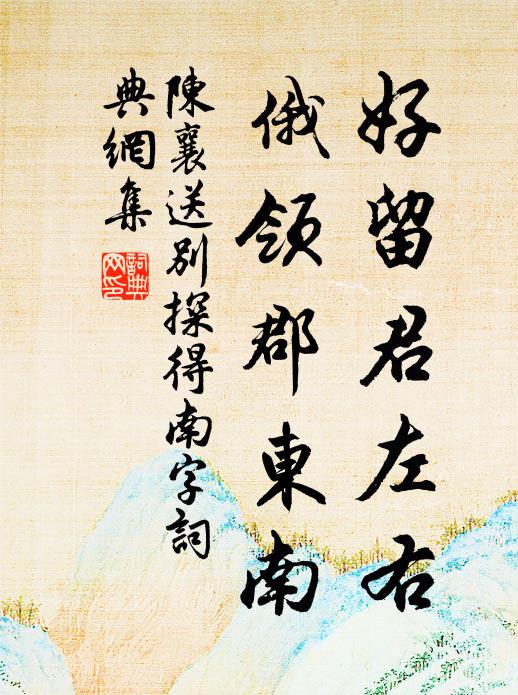 好留君左右
俄領郡東南
陳襄送別探得南字詞
典網集
詞典網印